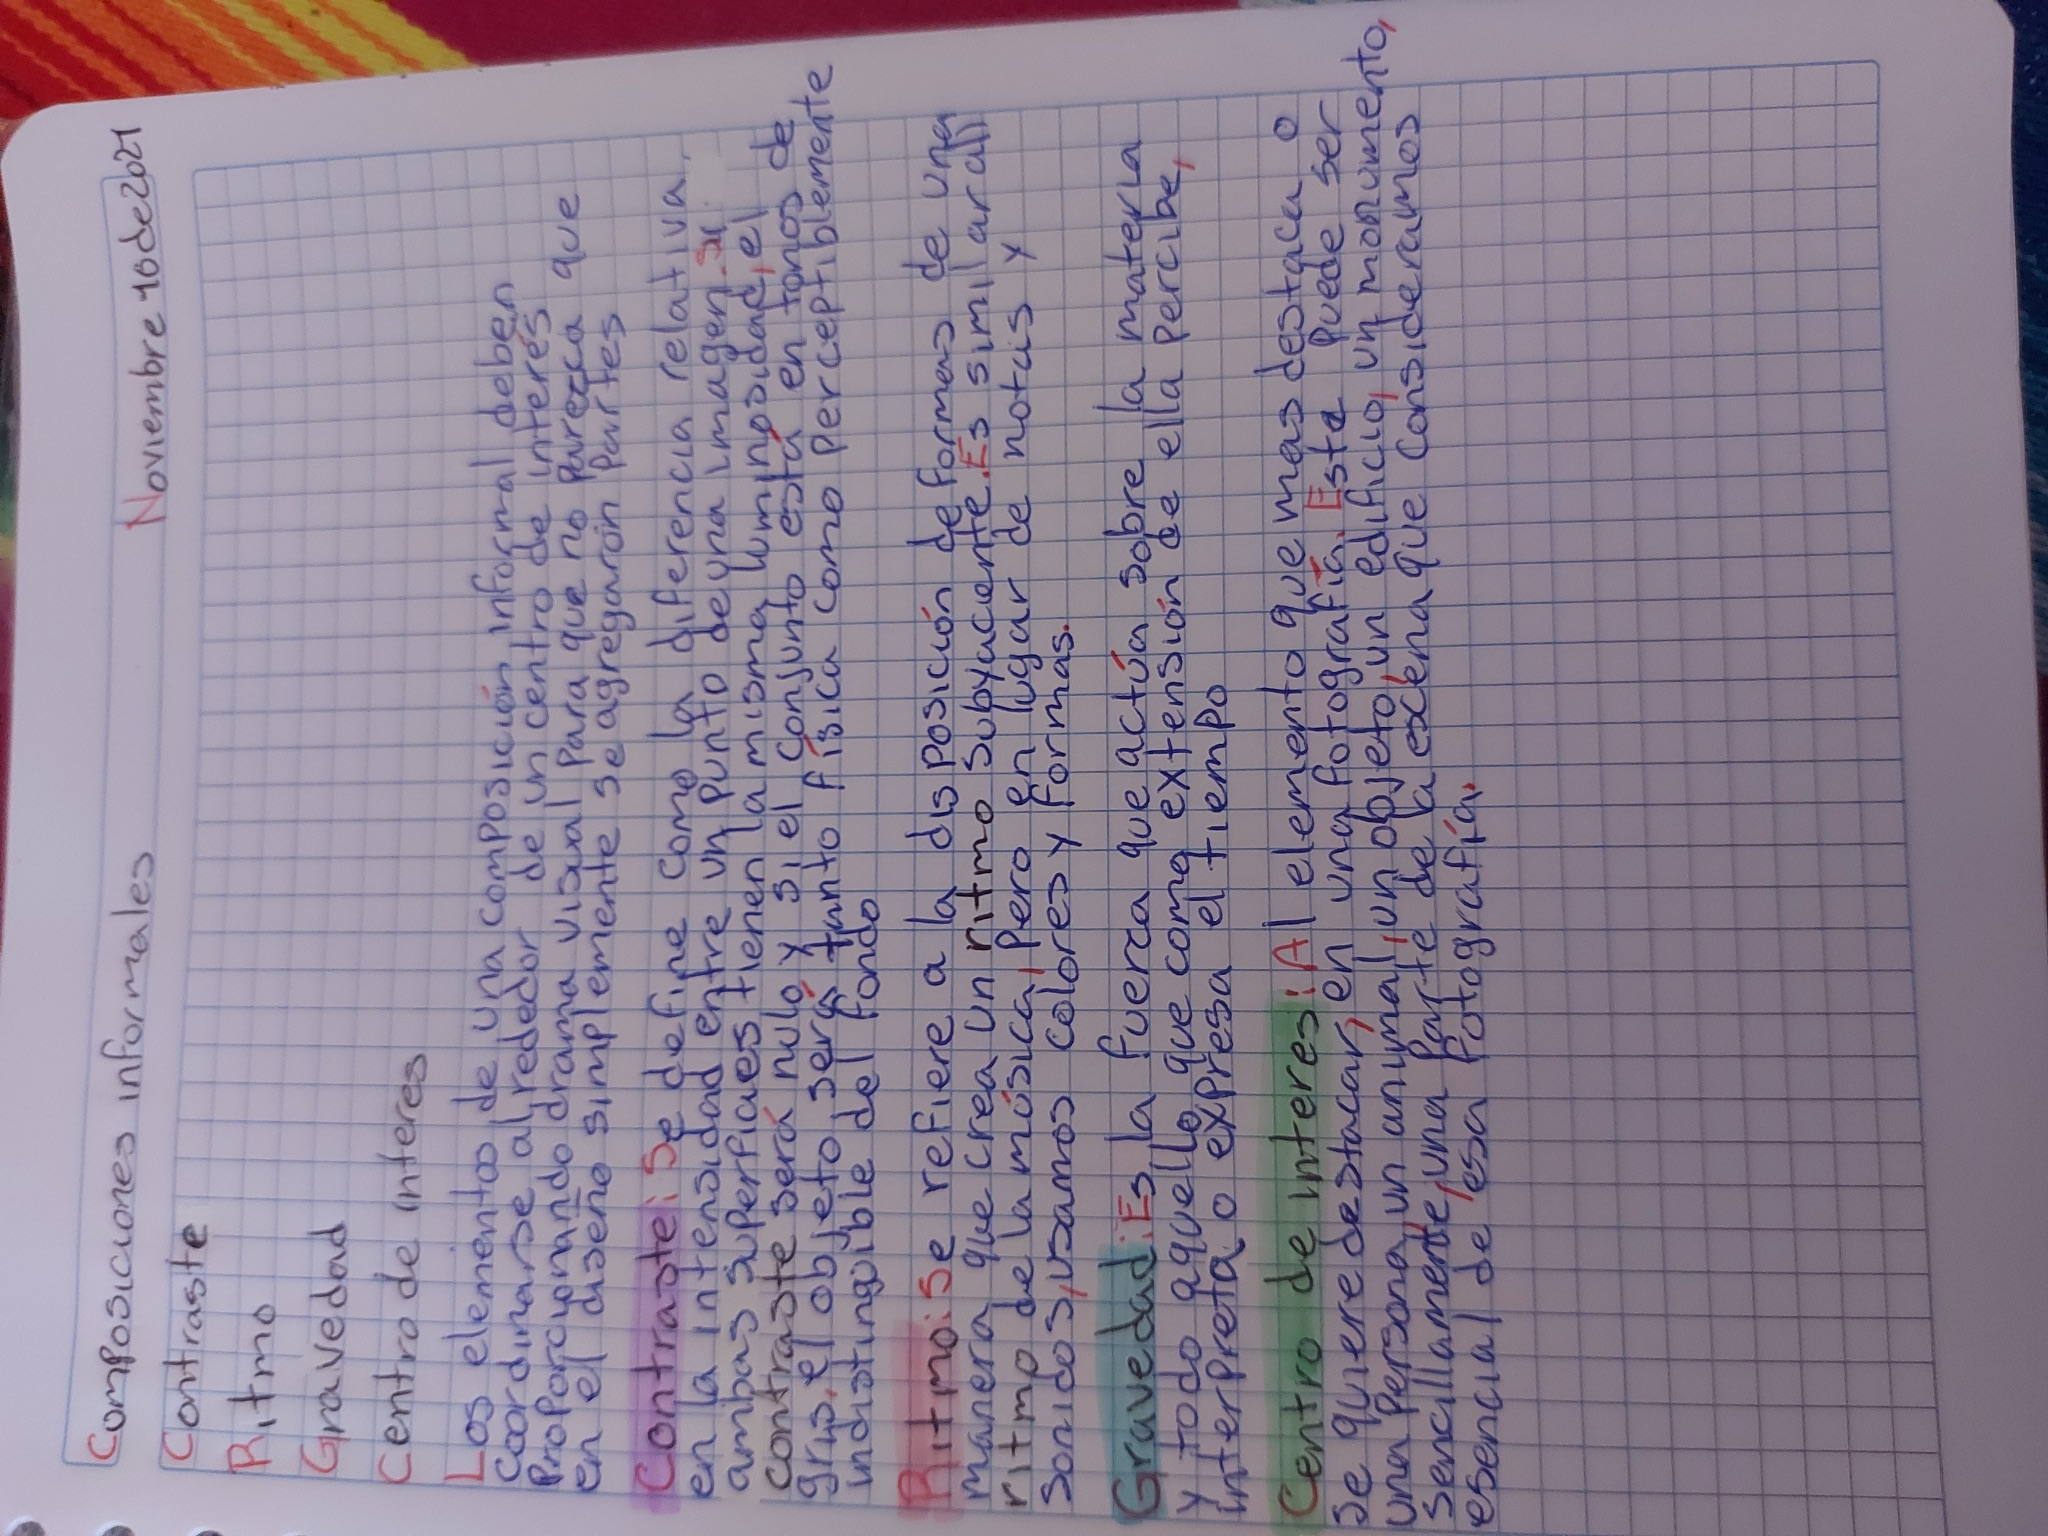 Composiciones informales
Noviembre 10 de 2021
Contraste
Ritmo
Gravedad
Centro de interes
Los elementos de una composición informal deben
coordinarse alrededor de un centro de interés
proporcionando drama visual para que no parezca que
en el diseño simplemente se agregarón partes
Contraste: Se define como la diferencia relativa
en la intensidad entre un punto de una imagen. Si
ambas superficies tienen la misma luminosidad, el
contraste será nulo y si el conjunto está en tonos de
gris, el objeto será tanto física como perceptiblemente
indistinguible del fondo
Ritmo: Se refiere a la disposición de formas de una
manera que crea un ritmo subyacente. Es similar al
ritmo de la música, pero en lugar de notas y
sonidos, usamos colores y formas.
Gravedad: Es la fuerza que actúa sobre la materia
y todo aquello que como extensión de ella percibe,
interpreta o expresa el tiempo
Centro de interes: Al elemento que mas destaca o
se quiere destacar, en una fotografía. Este puede ser
una persona, un animal, un objeto, un edificio, un monumento,
sencillamente, una parte de la escena que consideramos
esencial de esa fotografía.